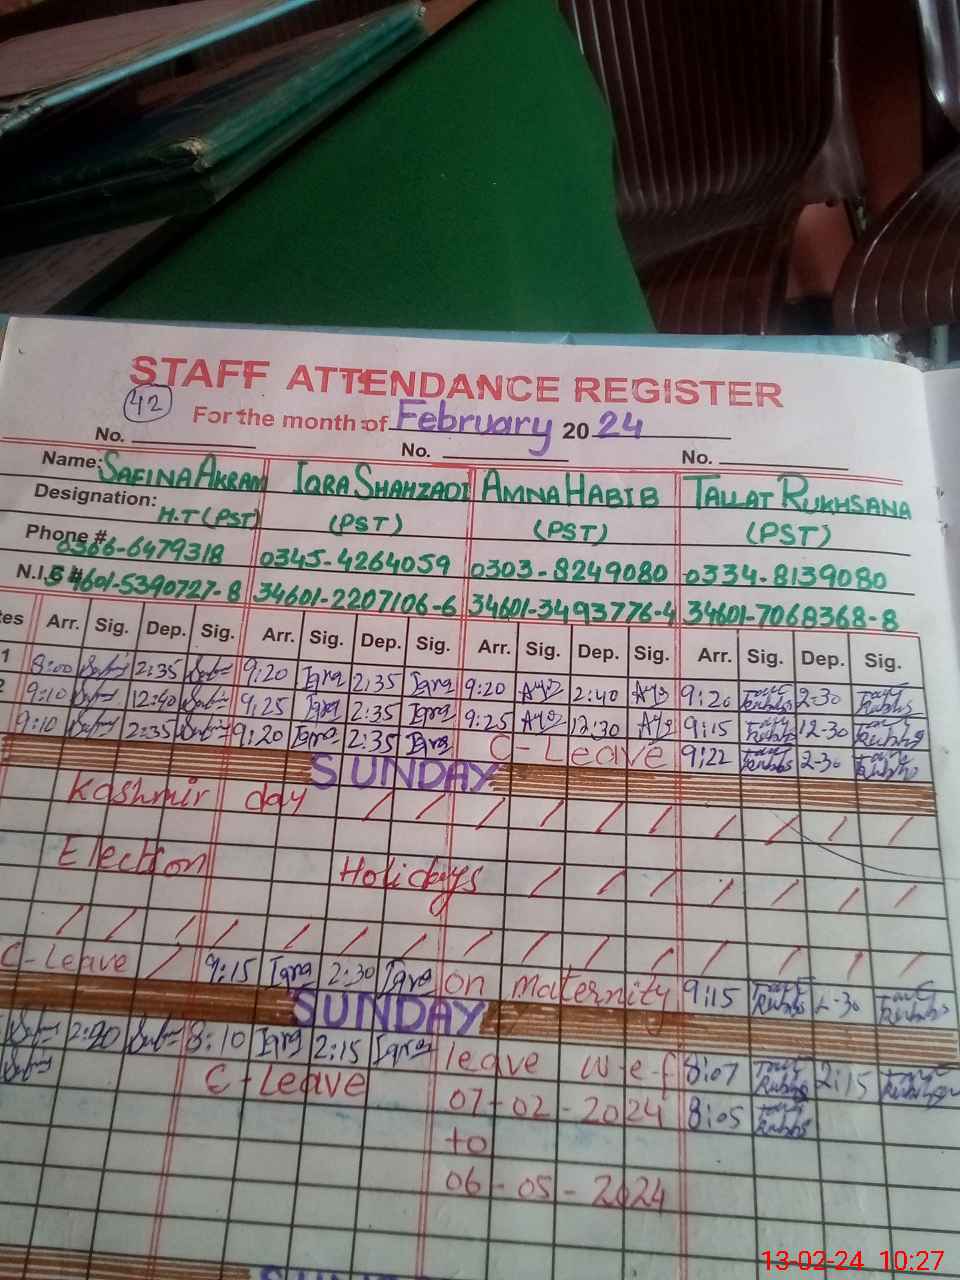 STAFF ATTENDANCE REGISTER
42 For the month of February 20 24
No. No. No.
Name: SAFINA AKRAM IQRA SHAHZADI AMNA HABIB TALLAT RUKHSANA
Designation: H.T (PST) (PST) (PST) (PST)
Phone # 0366-6479318 0345-4264059 0303-8249080 0334-8139080
N.I.C # 34601-5390727-8 34601-2207106-6 34601-3493776-4 34601-7068368-8
tes Arr. Sig. Dep. Sig. Arr. Sig. Dep. Sig. Arr. Sig. Dep. Sig. Arr. Sig. Dep. Sig.
1 8:00 2:35 9:20 Iqra 2:35 Iqra 9:20 2:40 9:20 2-30
2 9:10 12:40 9:25 Iqra 2:35 Iqra 9:25 12:30 9:15 12-30
9:10 2:35 9:20 Iqra 2:35 Iqra C-Leave 9:22 2-30
SUNDAY
Kashmir day / / / / / / / / / /
Election Holidays / / / / / / /
/ / / / / / / / / / / / / / /
C-Leave / 9:15 Iqra 2:30 Iqra on maternity 9:15 2-30
SUNDAY
8:10 Iqra 2:15 Iqra leave w-e-f 8:07 2:15
C-Leave 07-02-2024 8:05
to
06-05-2024
13-02-24 10:27